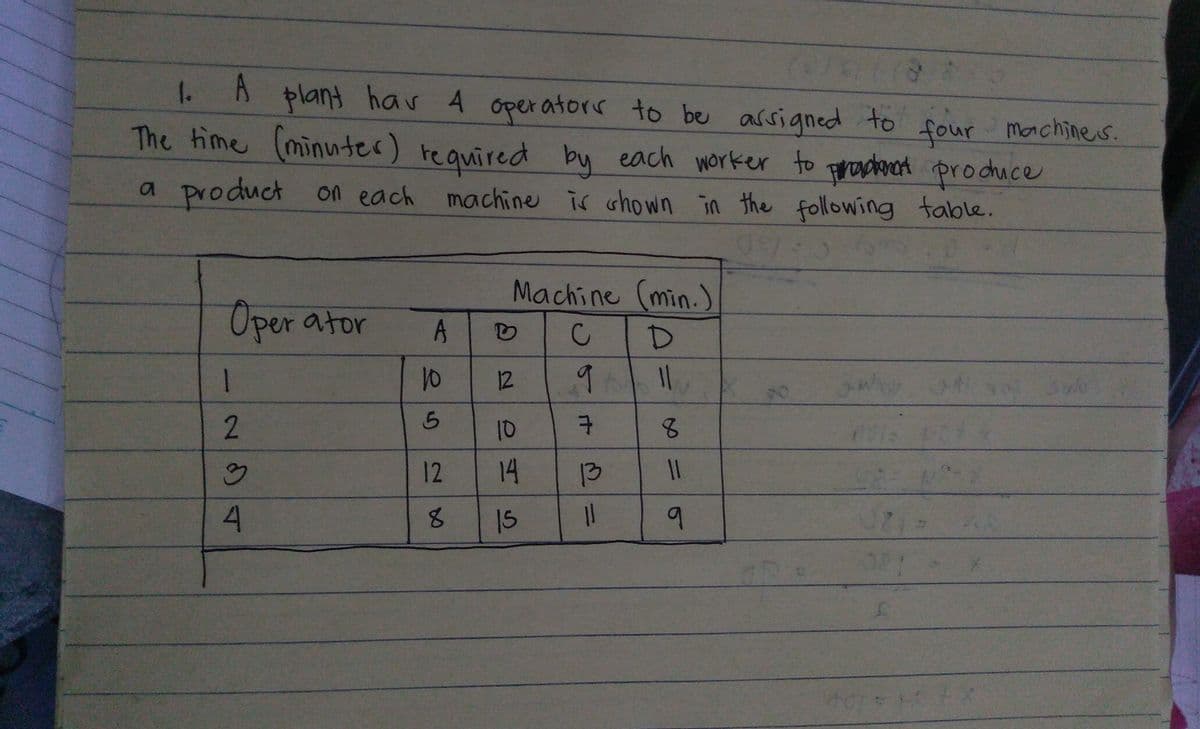 1. A plant has 4 operators to be assigned to four machines.
The time (minutes) required by each worker to produce
a product on each machine is shown in the following table.
Machine (min.)
Operator A B C D
1 10 12 9 11
2 5 10 7 8
3 12 14 13 11
4 8 15 11 9